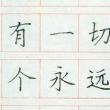 有一切
个永远